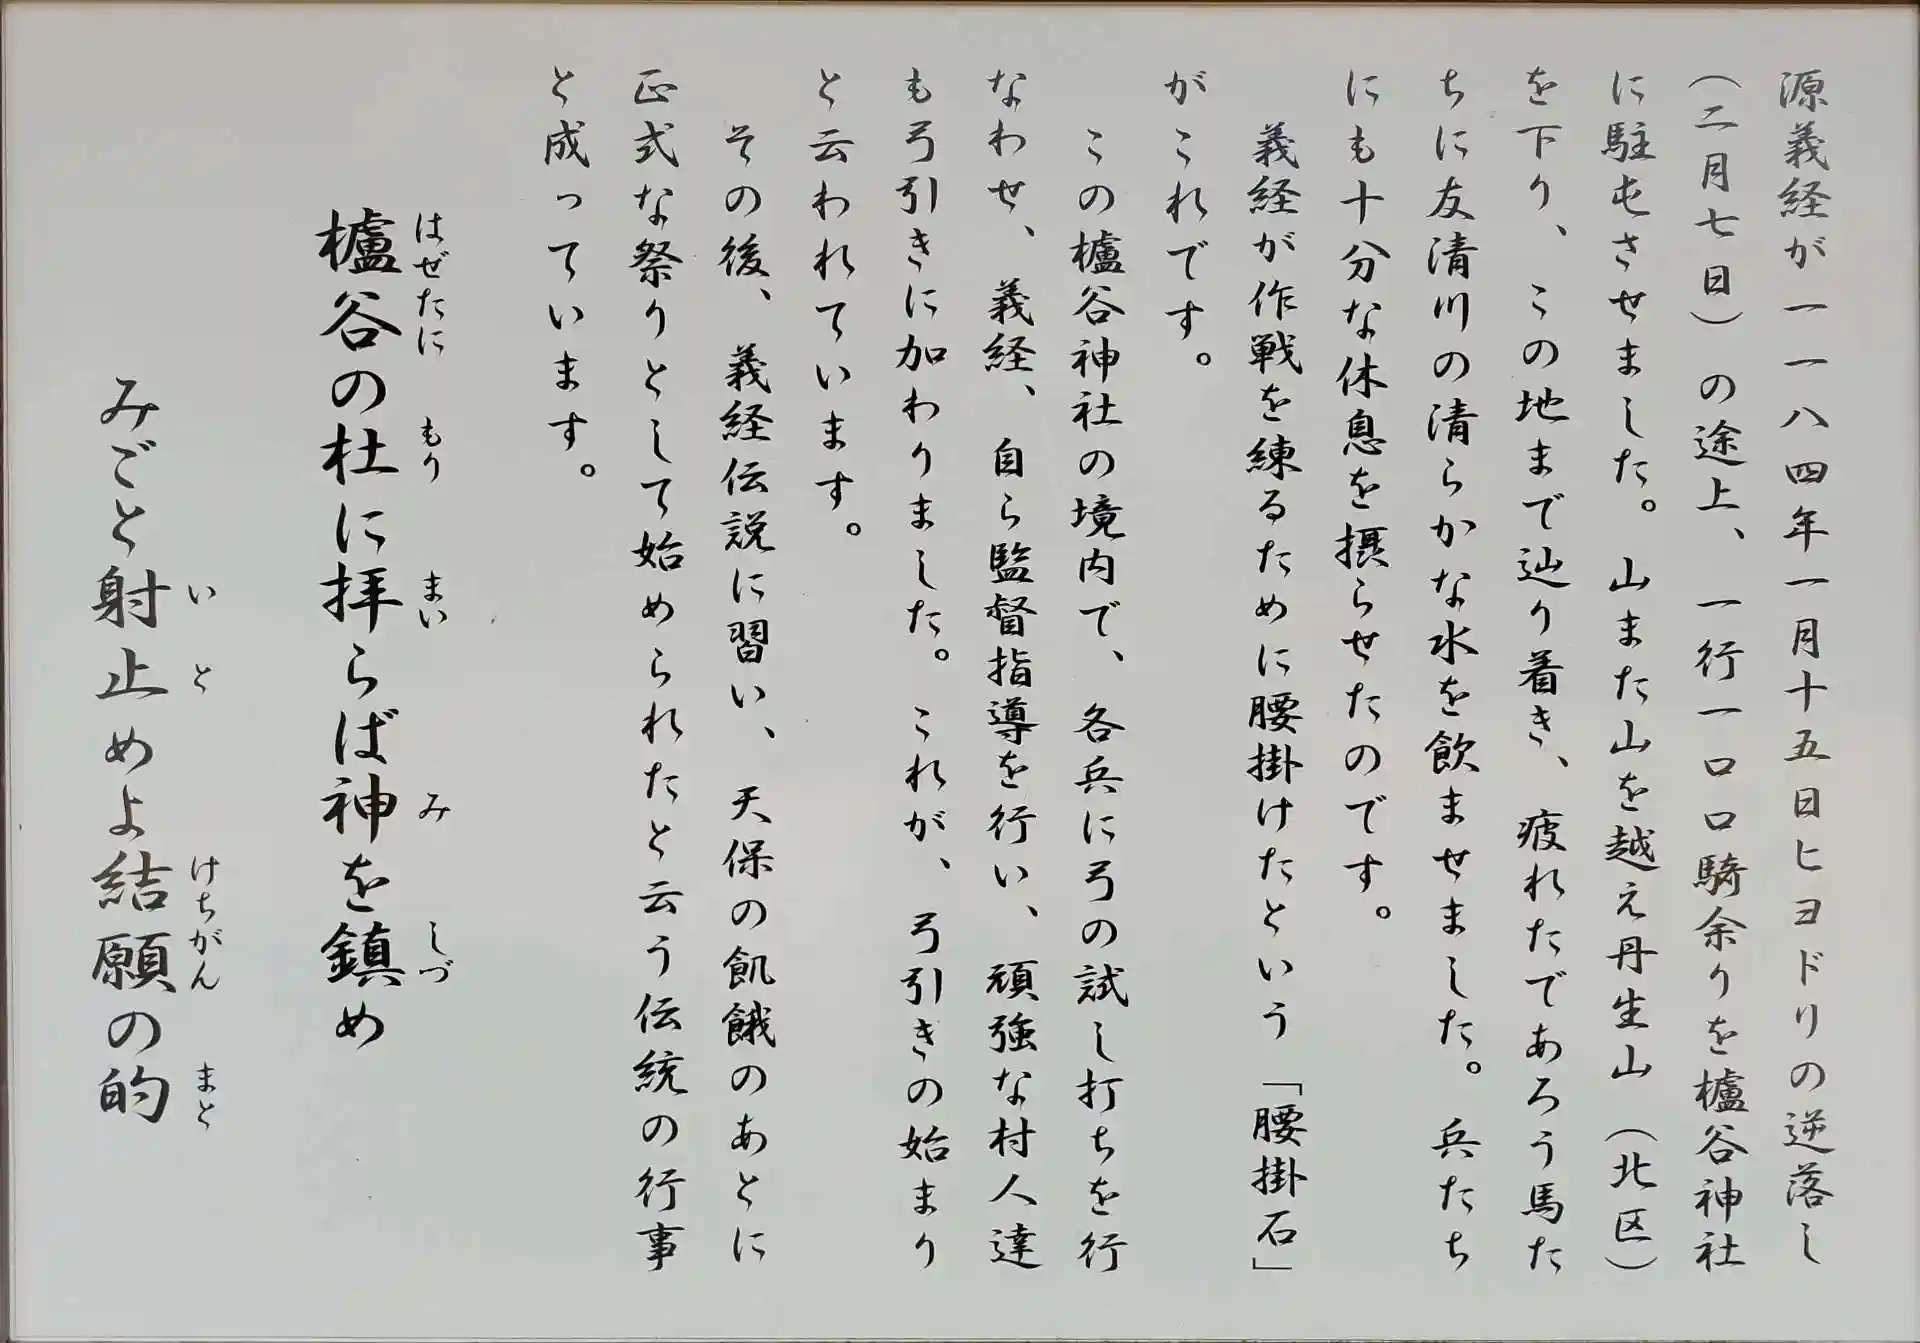 源義経が一一八四年一月十五日ヒヨドリの逆落し
(二月七日)の途上、一行一〇〇騎余りを櫨谷神社
に駐屯させました。山また山を越え丹生山(北区)
を下り、この地まで辿り着き、疲れたであろう馬た
ちに友清川の清らかな水を飲ませました。兵たち
にも十分な休息を摂らせたのです。
義経が作戦を練るために腰掛けたという「腰掛石」
がこれです。
この櫨谷神社の境内で、各兵に弓の試し打ちを行
なわせ、義経、自ら監督指導を行い、頑強な村人達
も弓引きに加わりました。これが、弓引きの始まり
と云われています。
その後、義経伝説に習い、天保の飢餓のあとに
正式な祭りとして始められたと云う伝統の行事
と成っています。
櫨谷の杜に拝らば神を鎮め
はぜたに もり まい み しづ
みごと射止めよ結願の的
い と けちがん まと